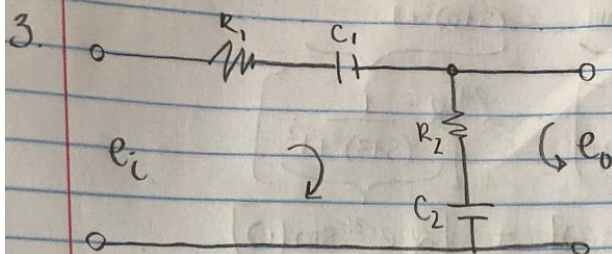 3.
R₁ C₁
R₂
eᵢ e₀
C₂